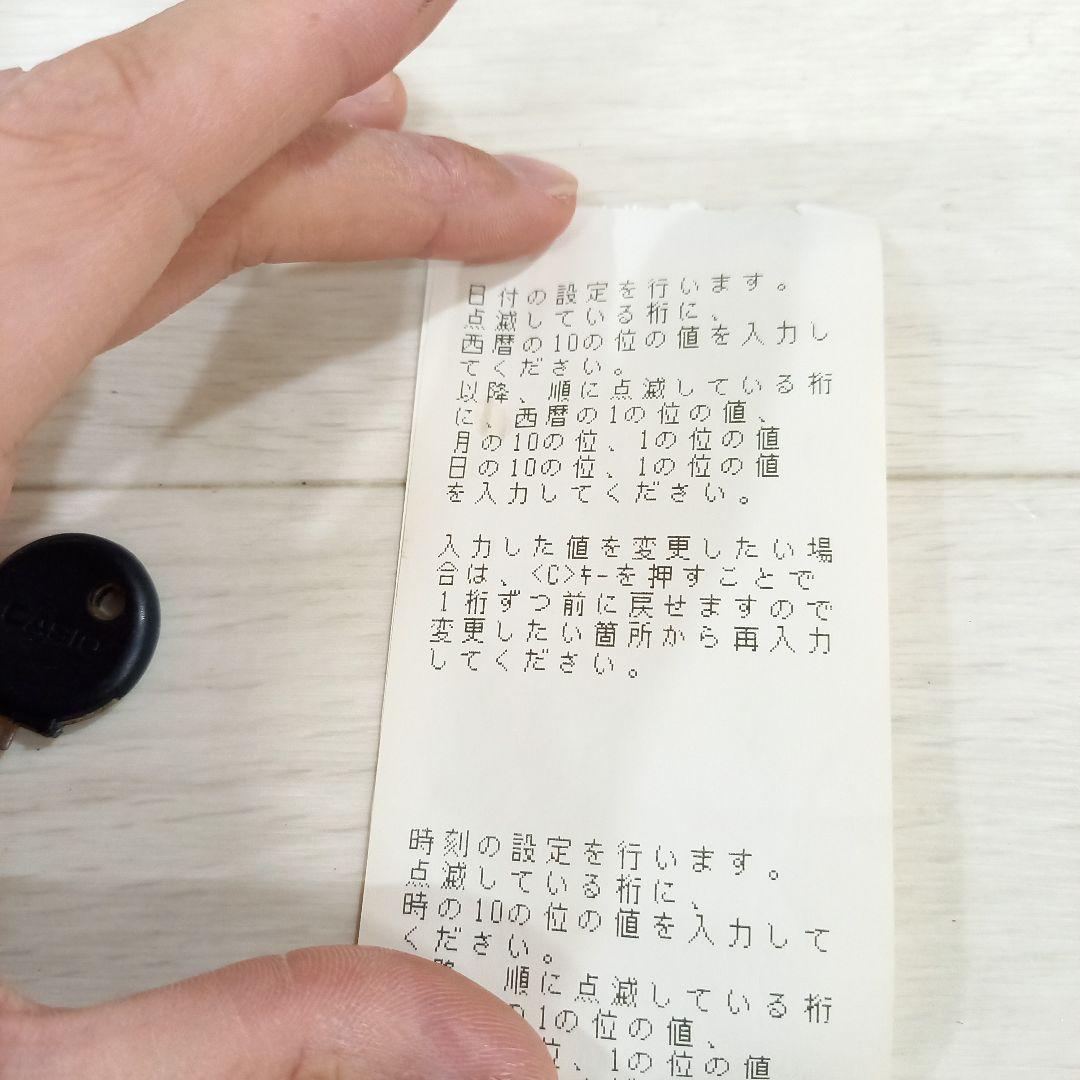 日付の設定を行います。
点滅している桁に、
西暦の10の位の値を入力し
てください。
以降、順に点滅している桁
に、西暦の1の位の値、
月の10の位、1の位の値
日の10の位、1の位の値
を入力してください。
入力した値を変更したい場
合は、<C>ｷｰを押すことで
1桁ずつ前に戻せますので
変更したい箇所から再入力
してください。
時刻の設定を行います。
点滅している桁に、
時の10の位の値を入力して
ください。
順に点滅している桁
の1の位の値、
位、1の位の値
CASIO